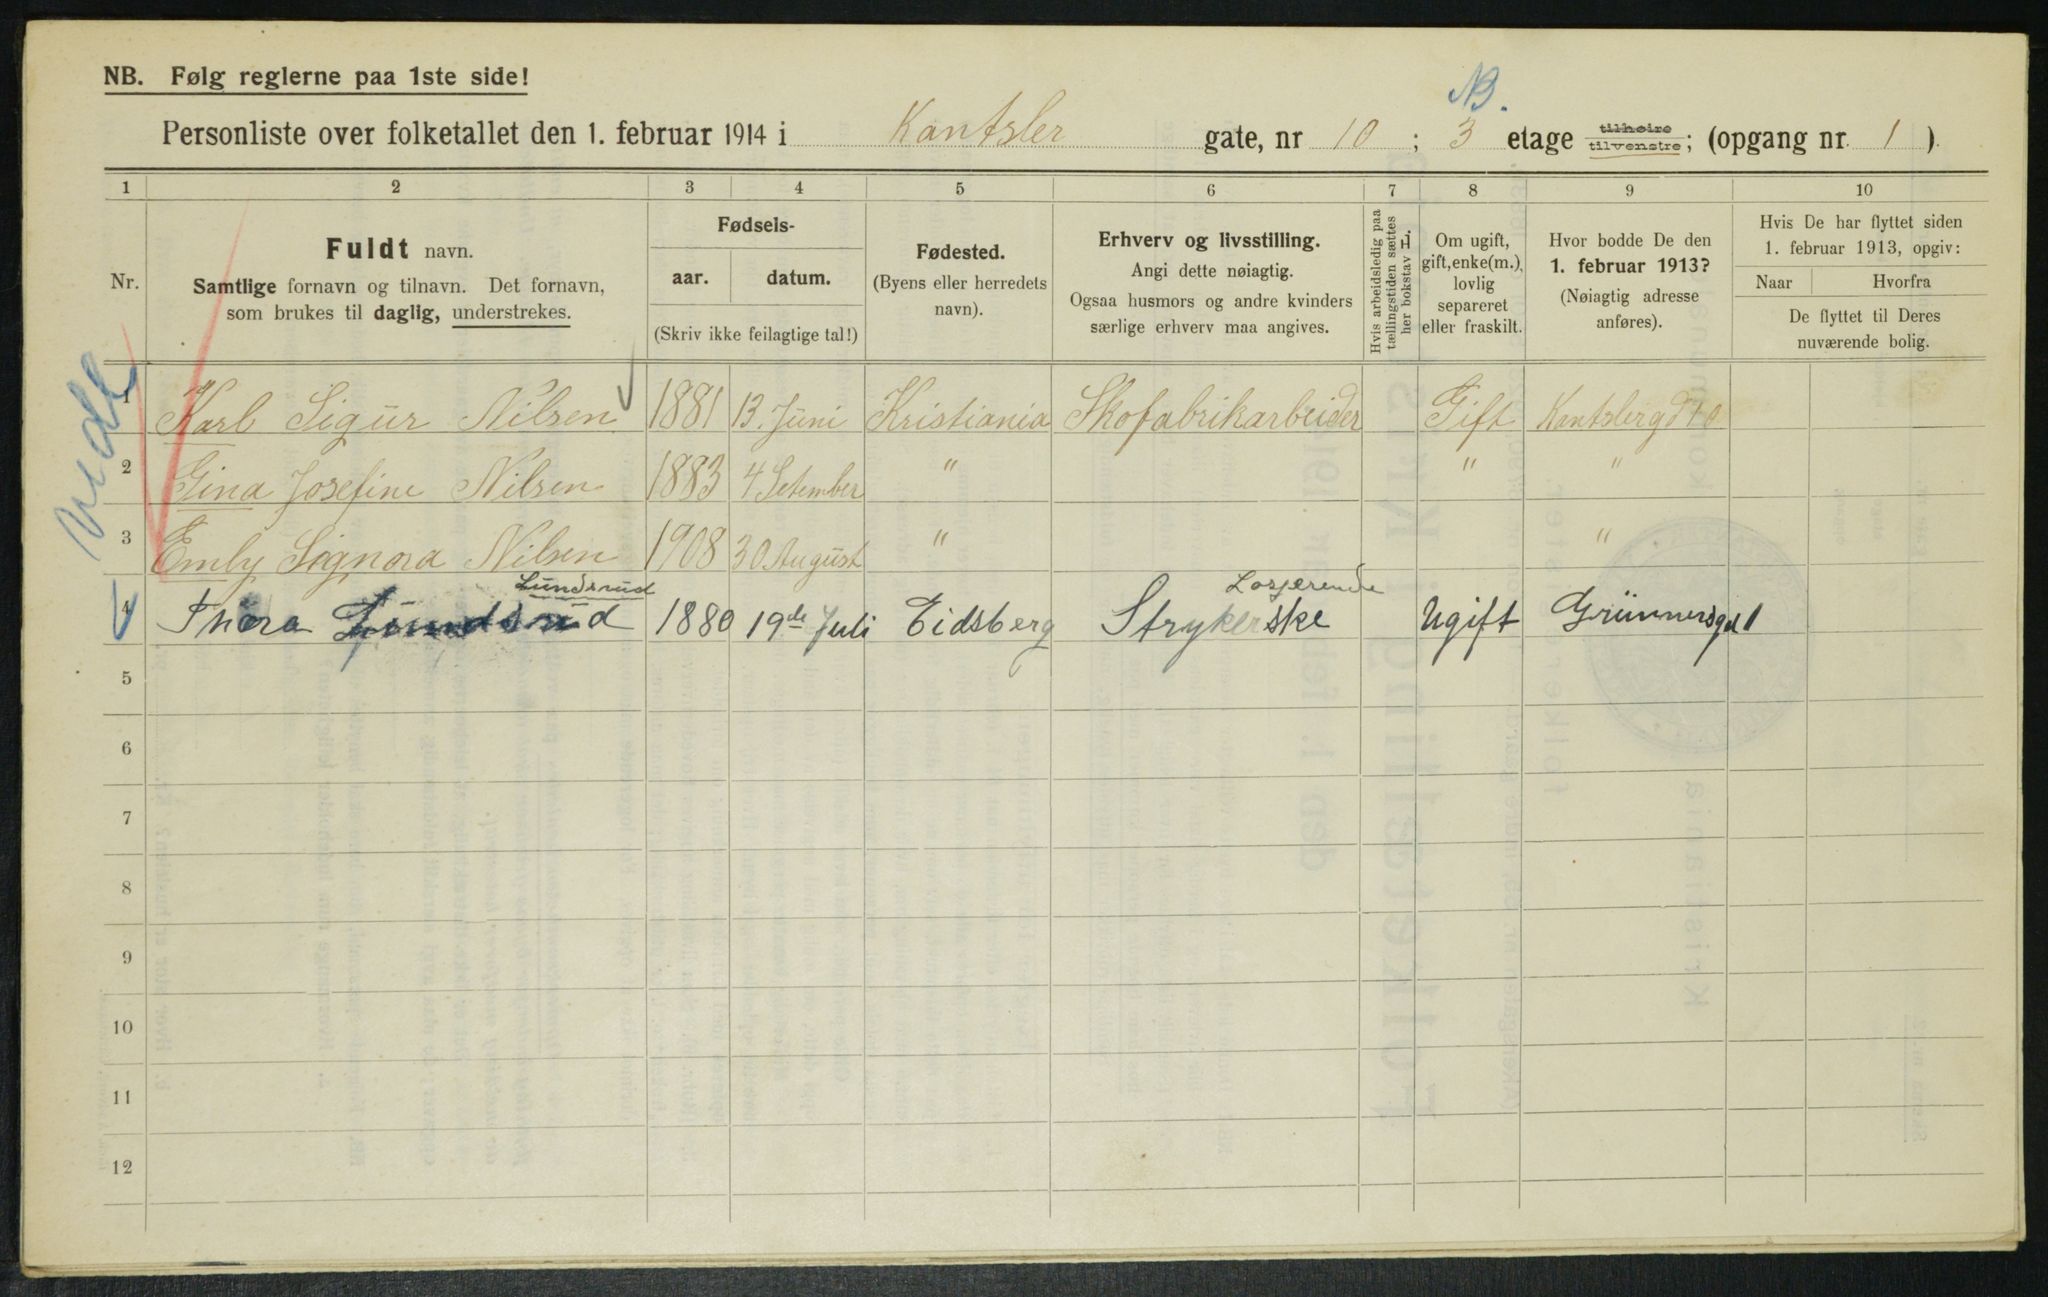 NB. Følg reglerne paa 1ste side!
NB.
Personliste over folketallet den 1. februar 1914 i Kantsler gate, nr 10; 3 etage tilhøire tilvenstre; (opgang nr. 1).
1 2 3 4 5 6 7 8 9 10
Nr.
Fuldt navn.
Samtlige fornavn og tilnavn. Det fornavn,
som brukes til daglig, understrekes.
Fødsels-
aar. datum.
(Skriv ikke feilagtige tal!)
Fødested.
(Byens eller herredets
navn).
Erhverv og livsstilling.
Angi dette nøiagtig.
Ogsaa husmors og andre kvinders
særlige erhverv maa angives.
Hvis arbeidsledig paa
tællingstiden sættes
her bokstav L.
Om ugift,
gift, enke(m.),
lovlig
separeret
eller fraskilt.
Hvor bodde De den
1. februar 1913?
(Nøiagtig adresse
anføres).
Hvis De har flyttet siden
1. februar 1913, opgiv:
Naar Hvorfra
De flyttet til Deres
nuværende bolig.
1 Karl Sigur Nilsen 1881 13. Juni Kristiania Skofabrikarbeider Gift Kantslergd 10
2 Gina Josefine Nilsen 1883 4 Setember " " "
3 Emly Signora Nilsen 1908 30 August " "
Lundsrud Losjerende
4 Thora Lundsrud 1880 19de Juli Eidsberg Strykerske Ugift Grünnersgd 1
5
6
7
8
9
10
11
12